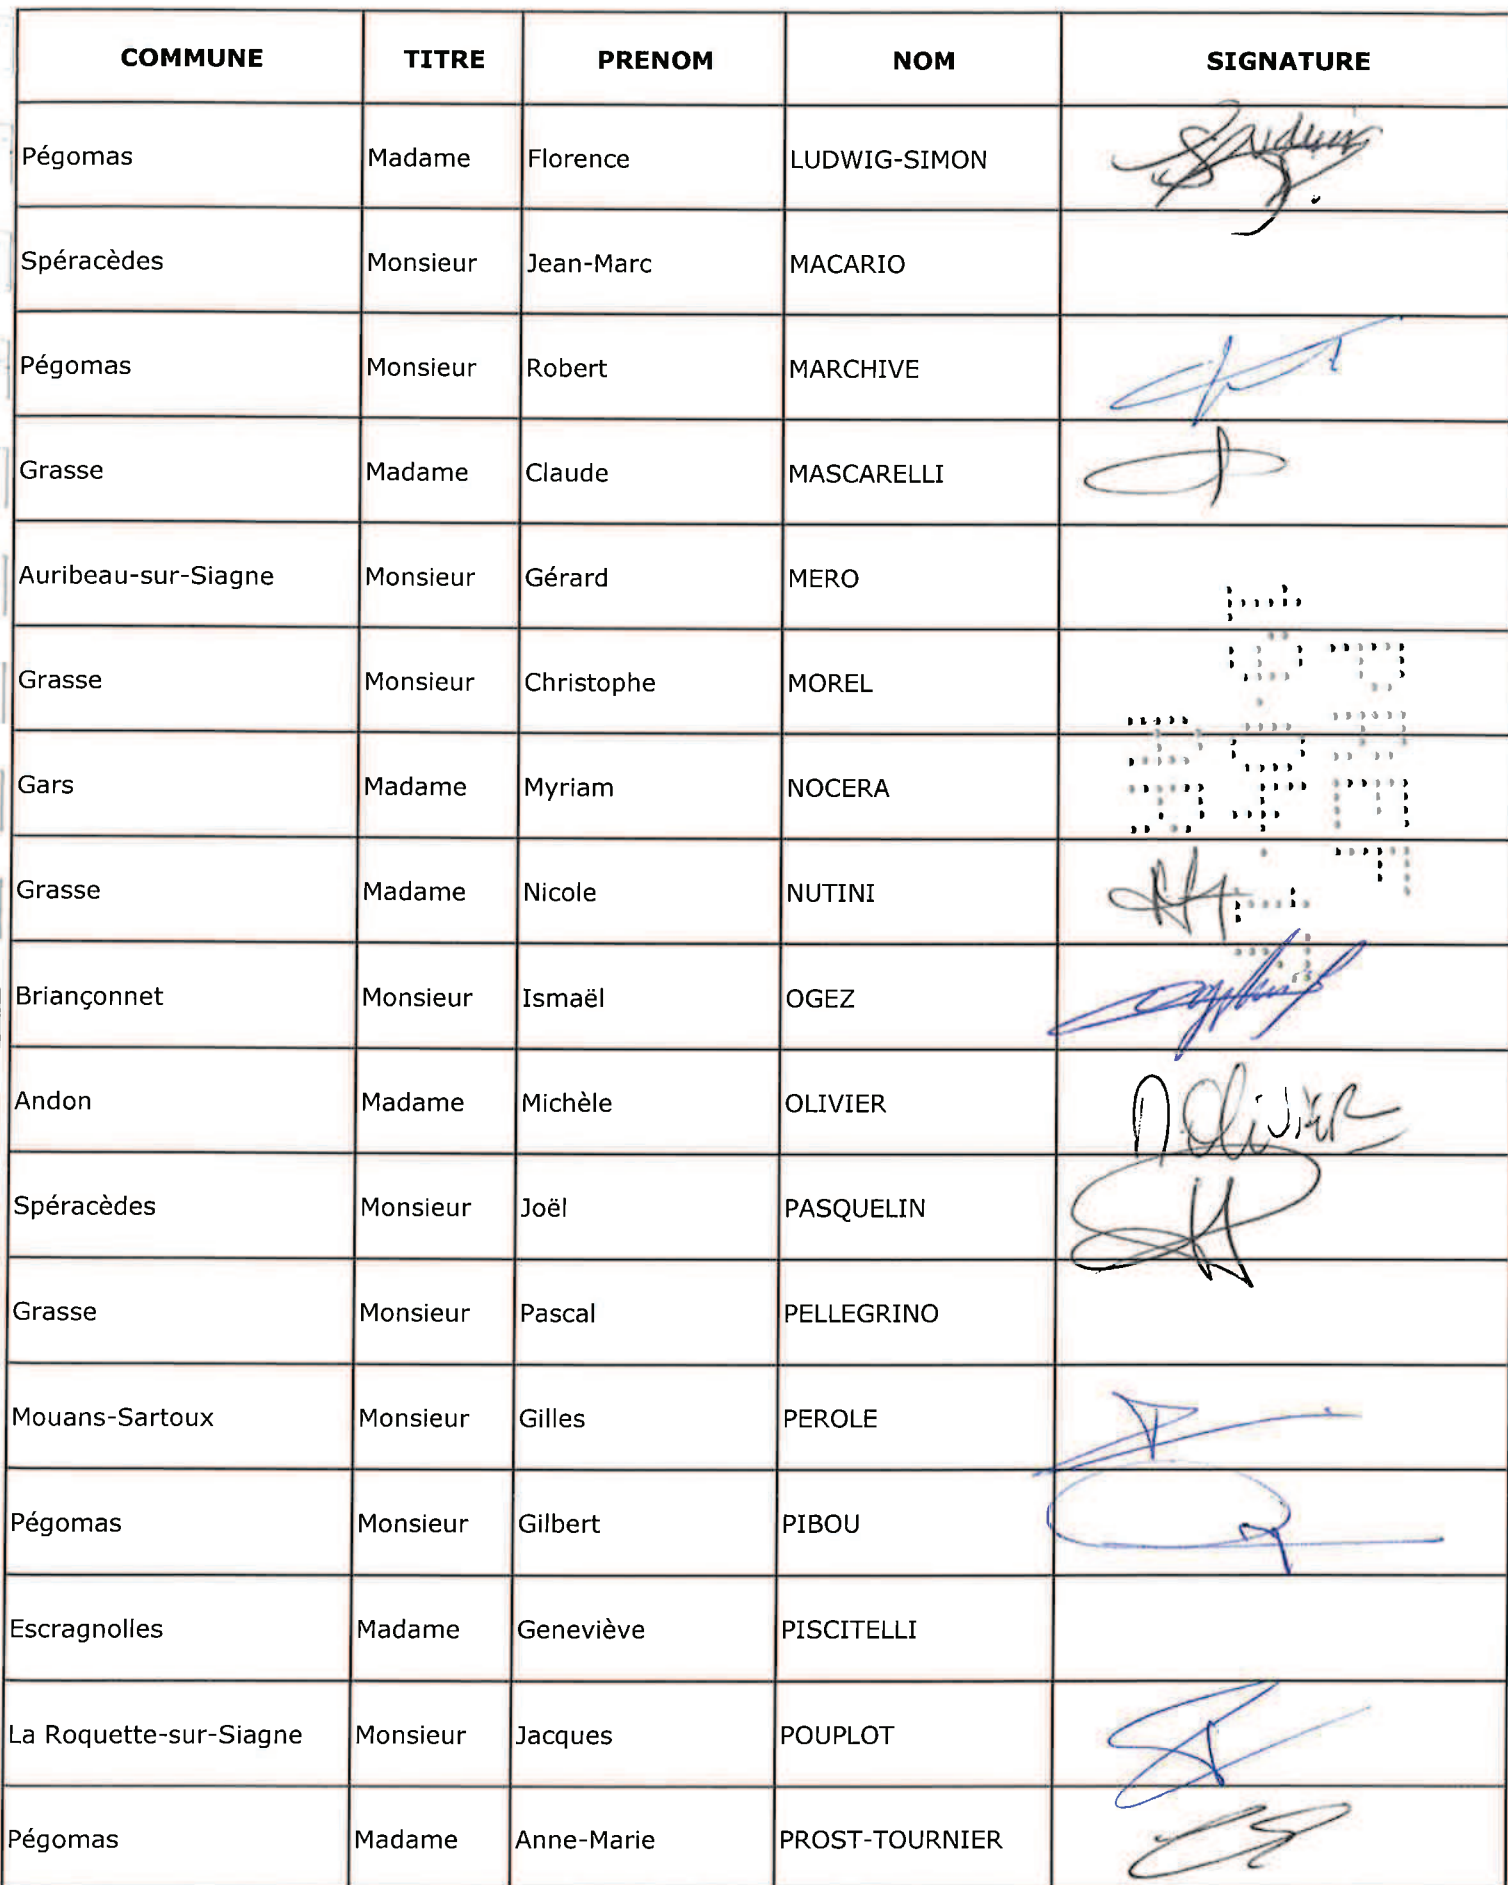 COMMUNE TITRE PRENOM NOM SIGNATURE
Pégomas Madame Florence LUDWIG-SIMON
Spéracèdes Monsieur Jean-Marc MACARIO
Pégomas Monsieur Robert MARCHIVE
Grasse Madame Claude MASCARELLI
Auribeau-sur-Siagne Monsieur Gérard MERO
Grasse Monsieur Christophe MOREL
Gars Madame Myriam NOCERA
Grasse Madame Nicole NUTINI
Briançonnet Monsieur Ismaël OGEZ
Andon Madame Michèle OLIVIER OLIVIER
Spéracèdes Monsieur Joël PASQUELIN
Grasse Monsieur Pascal PELLEGRINO
Mouans-Sartoux Monsieur Gilles PEROLE
Pégomas Monsieur Gilbert PIBOU
Escragnolles Madame Geneviève PISCITELLI
La Roquette-sur-Siagne Monsieur Jacques POUPLOT
Pégomas Madame Anne-Marie PROST-TOURNIER